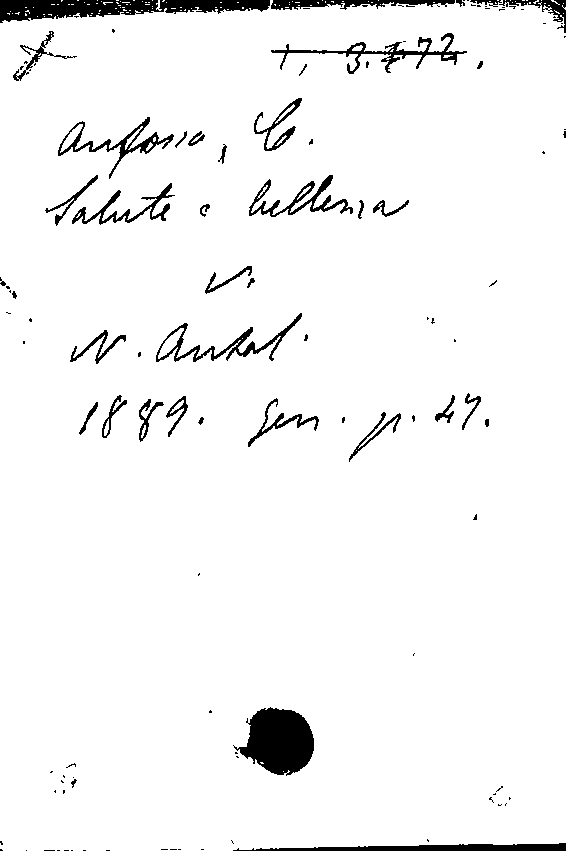 1, 3.272.
Anfosso, C.
Salute e bellezza
v.
N. Antol.
1889. Gen. p. 47.